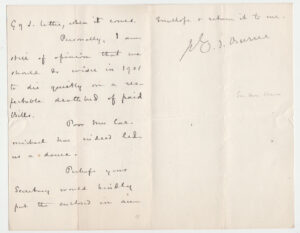 G. J. letter, when it comes.
Personally, I am
still of opinion that we
should be wiser in 1901
to die quietly on a res-
pectable deathbed of paid
Bills.
Poor Mrs Car-
michael has indeed led
us a dance.
Perhaps your
Secretary would kindly
put the enclosed in an
Envelope & return it to me.